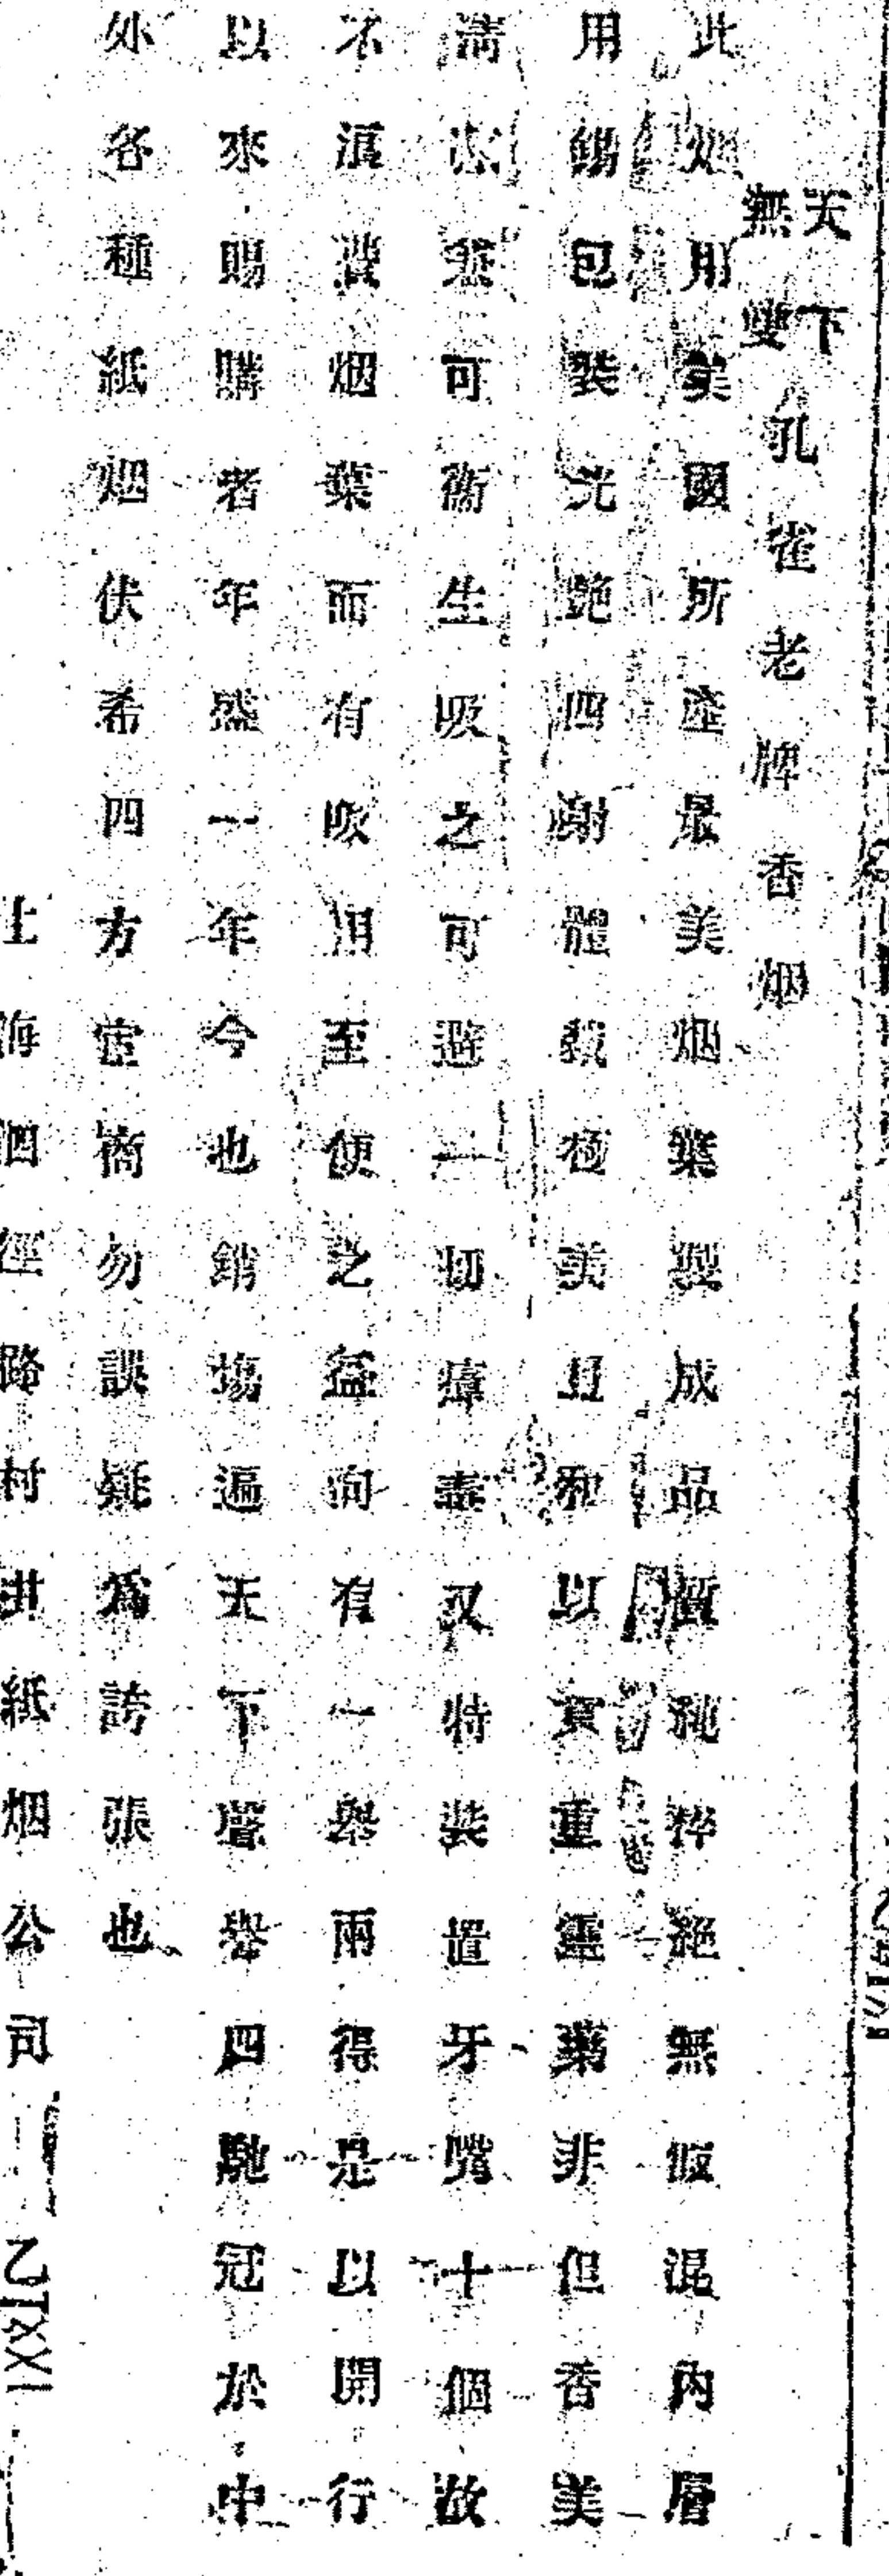 天下無雙孔雀老牌香烟
此烟用美國所產最美烟葉製成品質純粹絕無假混內層
用錫包裝光艷四謝體裁極美且和以貴重靈藥非但香美
淸潔並可衞生吸之可避一切瘴毒又特裝置牙嘴十個故
不濵費烟葉而有吸用至便之益向有一舉兩得是以開行
以來賜購者年盛一年今也銷塲遍天下聲譽四馳冠於中
外各種紙烟伏希四方宦商勿誤疑爲誇張也
上海泗徑路村井紙烟公司